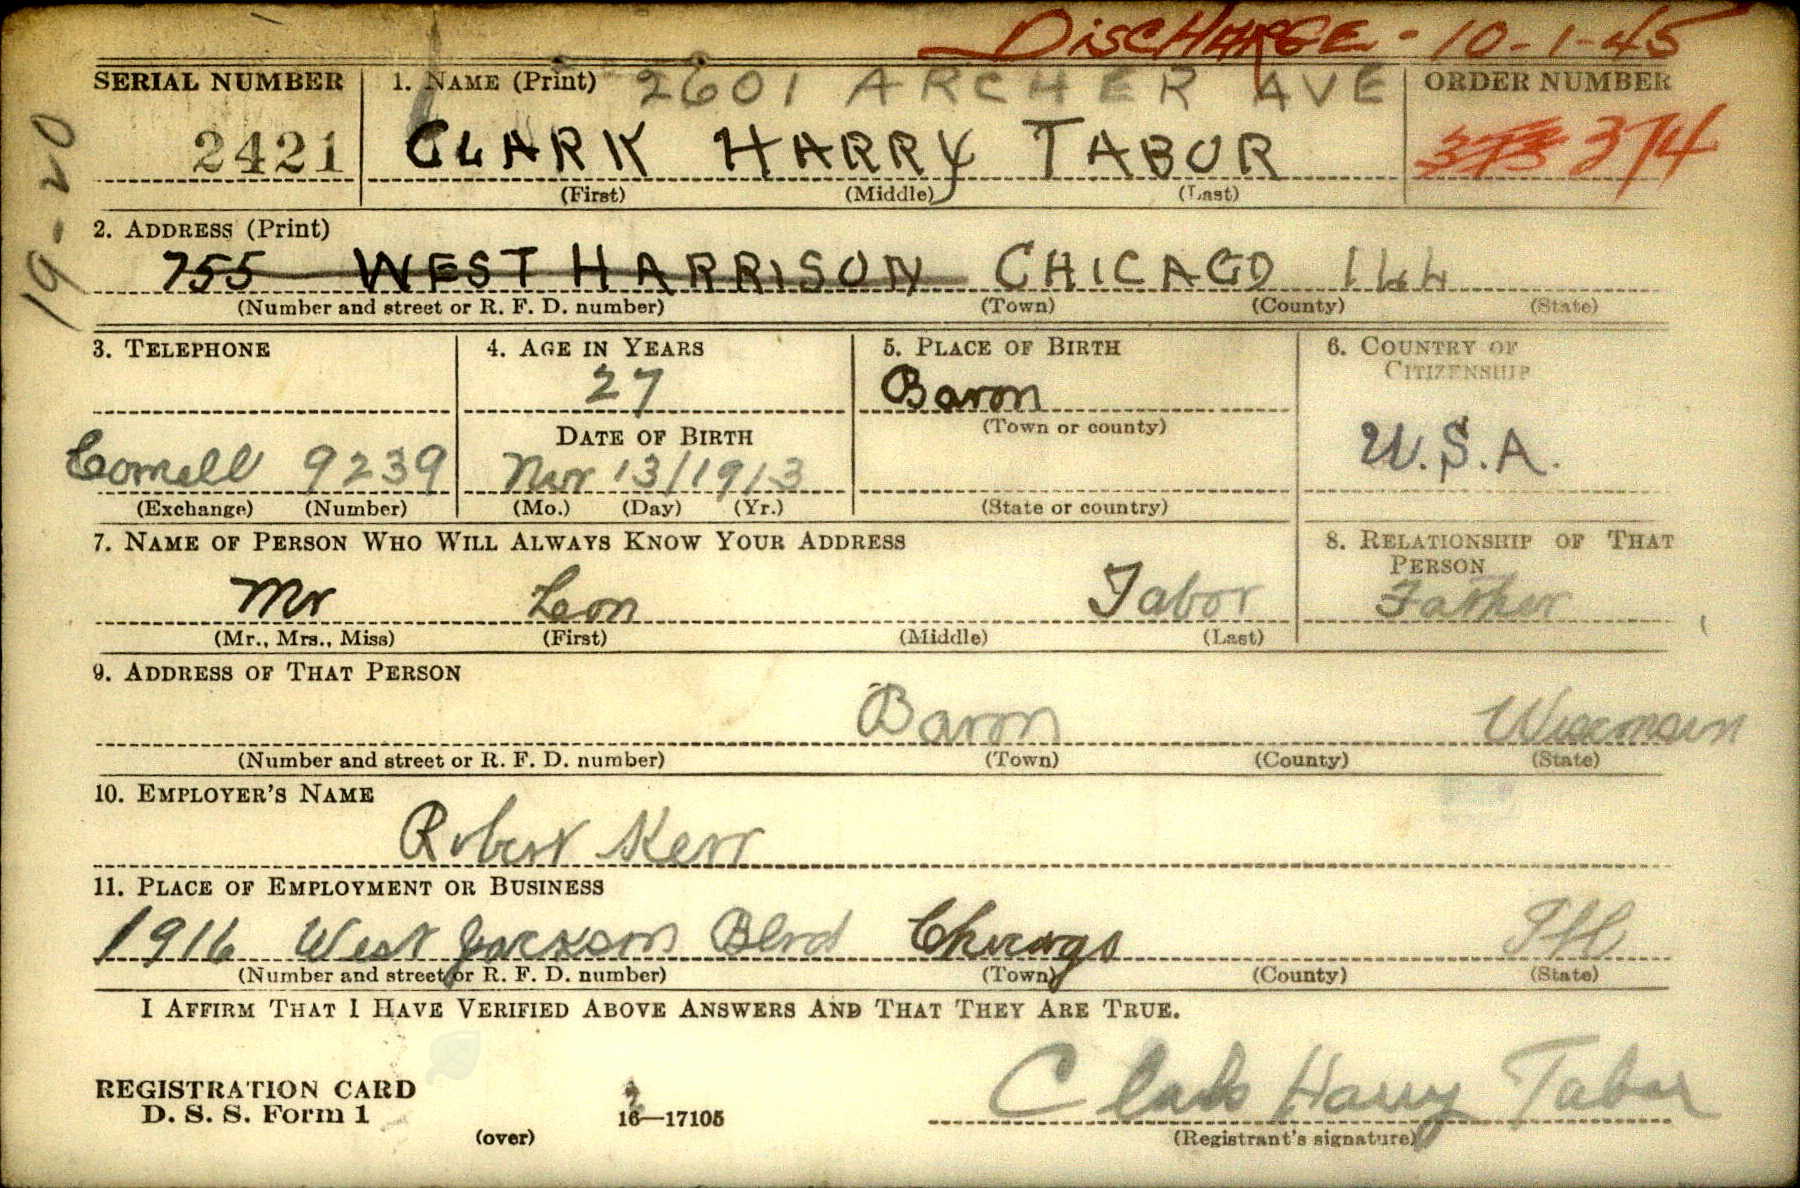 DISCHARGE - 10-1-45
SERIAL NUMBER 1. NAME (Print) 2601 ARCHER AVE ORDER NUMBER
2421 CLARK HARRY TABOR 373 374
(First) (Middle) (Last)
19-20
2. ADDRESS (Print)
755 WEST HARRISON CHICAGO ILL
(Number and street or R. F. D. number) (Town) (County) (State)
3. TELEPHONE 4. AGE IN YEARS 5. PLACE OF BIRTH 6. COUNTRY OF CITIZENSHIP
27 Baron
DATE OF BIRTH (Town or county) U.S.A.
Cornell 9239 Nov 13/1913
(Exchange) (Number) (Mo.) (Day) (Yr.) (State or country)
7. NAME OF PERSON WHO WILL ALWAYS KNOW YOUR ADDRESS 8. RELATIONSHIP OF THAT PERSON
Mr Leon Tabor Father
(Mr., Mrs., Miss) (First) (Middle) (Last)
9. ADDRESS OF THAT PERSON
Baron Wisconsin
(Number and street or R. F. D. number) (Town) (County) (State)
10. EMPLOYER'S NAME
Robert Kerr
11. PLACE OF EMPLOYMENT OR BUSINESS
1916 West Jackson Blvd Chicago Ill
(Number and street or R. F. D. number) (Town) (County) (State)
I AFFIRM THAT I HAVE VERIFIED ABOVE ANSWERS AND THAT THEY ARE TRUE.
REGISTRATION CARD
D. S. S. Form 1 16—17105 Clark Harry Tabor
(over) (Registrant's signature)